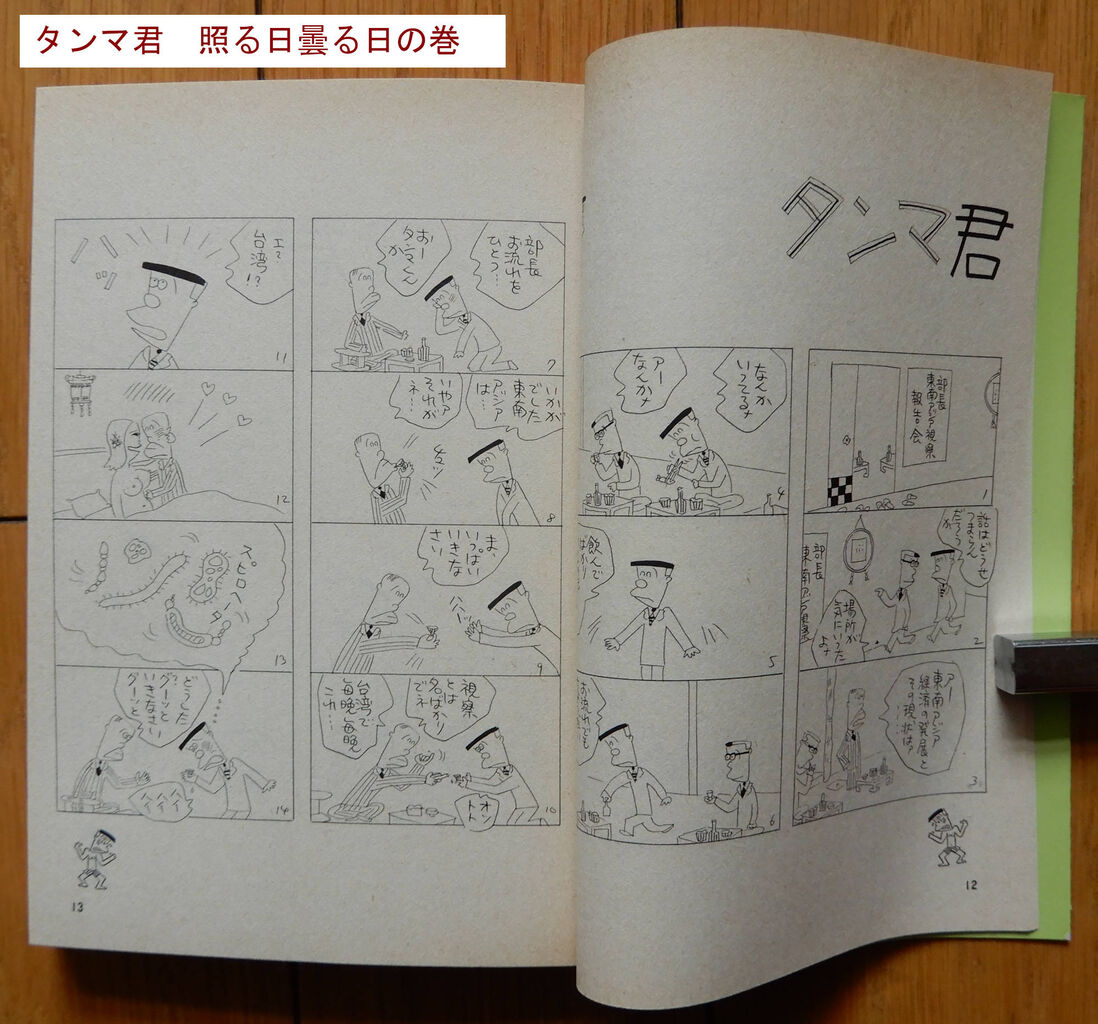 タンマ君　照る日曇る日の巻
タンマ君
部長
東南アジア視察
報告会
1
話はどうせ
つまらん
だろう
が
場所が
気にいった
よナ
部長
東南アジア視察
2
アー
東南アジア
経済の発展と
その現状は…
3
なんか
いってるナ
アー
なんかナ
4
飲んで
ばかり
5
お流れでも
6
部長
お流れを
ひとつ…
おー
タンマくん
か
7
いかが
でした
東南
アジア
は…
いやア
それが
ネ…
8
ま、
いっぱい
いきな
さい
ハハッ
9
視察
とは
名ばかり
でネ
台湾で
毎晩毎晩
コレ…
オットト
10
エッ
台湾!?
ハッ
11
12
スピロヘータ
13
どうした
?
グーッと
いきなさい
グーッと
ハイハイハイ
14
13
12